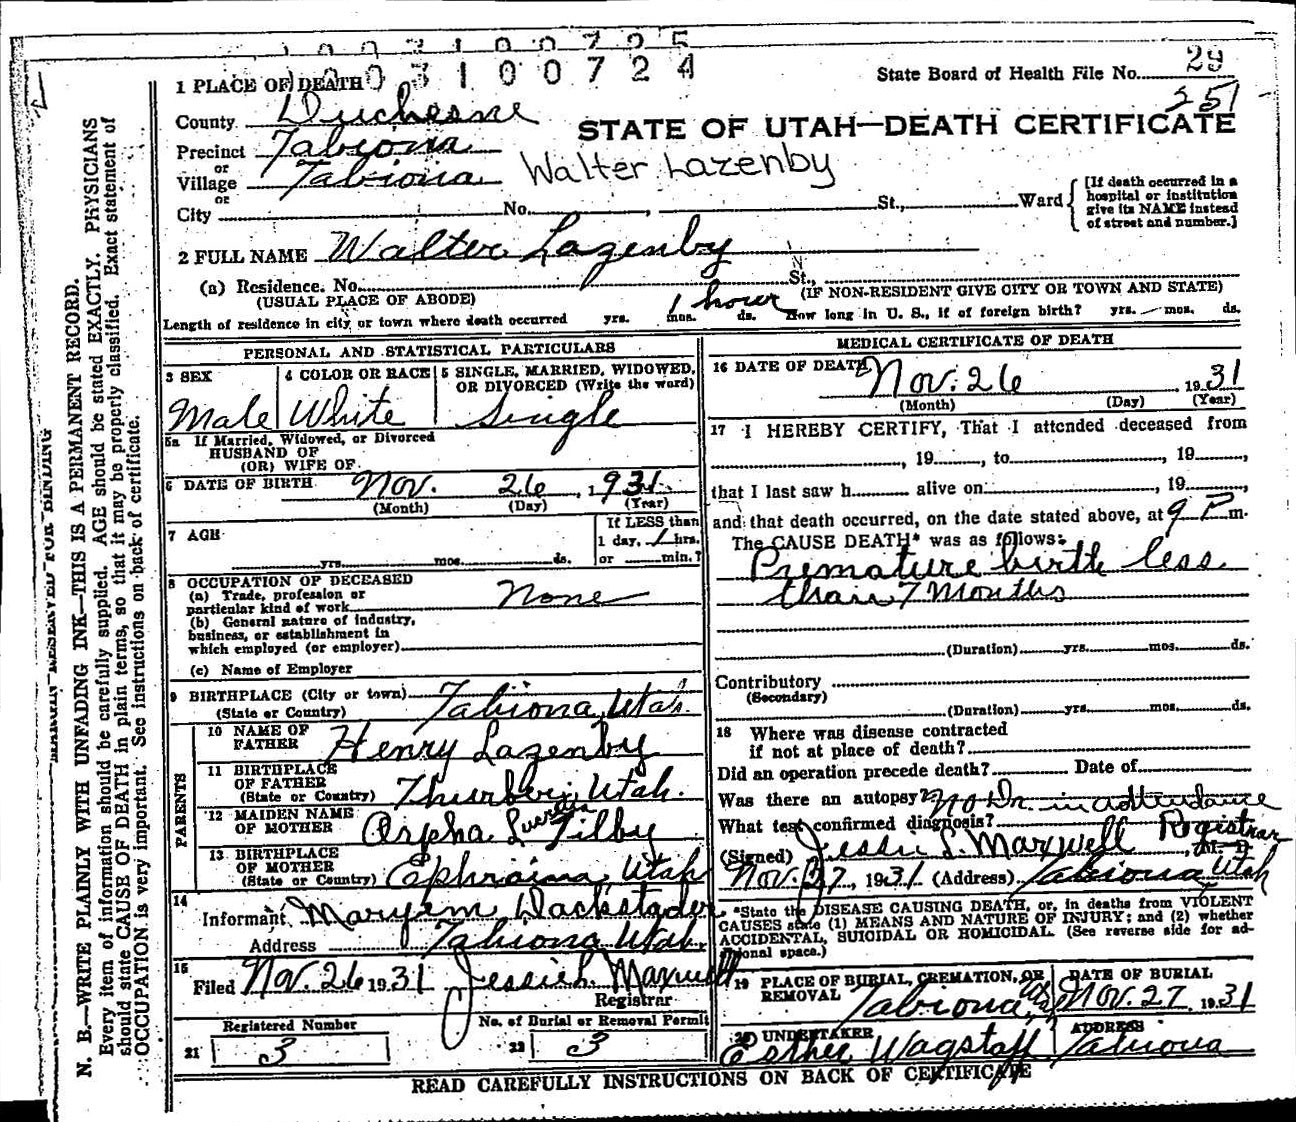 1003100725
1003100724
State Board of Health File No. 29
251
1 PLACE OF DEATH
County Duchesne
STATE OF UTAH—DEATH CERTIFICATE
Precinct Tabiona
or
Village Tabiona Walter Lazenby
or
City No. , St., Ward
[If death occurred in a
hospital or institution
give its NAME instead
of street and number.]
2 FULL NAME Walter Lazenby
(a) Residence. No. St.,
(USUAL PLACE OF ABODE) (IF NON-RESIDENT GIVE CITY OR TOWN AND STATE)
Length of residence in city or town where death occurred yrs. mos. ds. 1 hour How long in U. S., if of foreign birth? yrs. mos. ds.
PERSONAL AND STATISTICAL PARTICULARS
3 SEX
Male
4 COLOR OR RACE
White
5 SINGLE, MARRIED, WIDOWED,
OR DIVORCED (Write the word)
Single
5a If Married, Widowed, or Divorced
HUSBAND OF
(OR) WIFE OF
6 DATE OF BIRTH Nov. 26, 1931
(Month) (Day) (Year)
7 AGE
yrs. mos. ds.
If LESS than
1 day, 1 hrs.
or min.?
8 OCCUPATION OF DECEASED
(a) Trade, profession or
particular kind of work None
(b) General nature of industry,
business, or establishment in
which employed (or employer)
(c) Name of Employer
9 BIRTHPLACE (City or town) Tabiona, Utah.
(State or Country)
PARENTS
10 NAME OF
FATHER Henry Lazenby
11 BIRTHPLACE
OF FATHER
(State or Country) Thurber, Utah.
12 MAIDEN NAME
OF MOTHER Orpha Tilby
13 BIRTHPLACE
OF MOTHER
(State or Country) Ephraim, Utah
14
Informant
Address Tabiona Utah.
15
Filed Nov. 26 1931 Jessie L. Maxwell
Registrar
Registered Number
21 3
No. of Burial or Removal Permit
22 3
MEDICAL CERTIFICATE OF DEATH
16 DATE OF DEATH Nov. 26 1931
(Month) (Day) (Year)
17 I HEREBY CERTIFY, That I attended deceased from
, 19 , to , 19 ,
that I last saw h alive on , 19 ,
and that death occurred, on the date stated above, at 9 P m.
The CAUSE DEATH* was as follows:
Premature birth less
than 7 Months
(Duration) yrs. mos. ds.
Contributory
(Secondary)
(Duration) yrs. mos. ds.
18 Where was disease contracted
if not at place of death?
Did an operation precede death? Date of
Was there an autopsy? No Dr. in attendance
What test confirmed diagnosis?
(Signed) Jessie L. Maxwell Registrar, M. D.
Nov. 27, 1931 (Address) Tabiona Utah
*State the DISEASE CAUSING DEATH, or, in deaths from VIOLENT
CAUSES state (1) MEANS AND NATURE OF INJURY; and (2) whether
ACCIDENTAL, SUICIDAL OR HOMICIDAL. (See reverse side for ad-
ditional space.)
19 PLACE OF BURIAL, CREMATION, OR
REMOVAL Tabiona
DATE OF BURIAL
Nov. 27 1931
20 UNDERTAKER
Esther Wagstaff
ADDRESS
Tabiona
READ CAREFULLY INSTRUCTIONS ON BACK OF CERTIFICATE
MARGIN RESERVED FOR BINDING
N. B.—WRITE PLAINLY WITH UNFADING INK—THIS IS A PERMANENT RECORD.
Every item of information should be carefully supplied. AGE should be stated EXACTLY. PHYSICIANS
should state CAUSE OF DEATH in plain terms, so that it may be properly classified. Exact statement of
OCCUPATION is very important. See instructions on back of certificate.